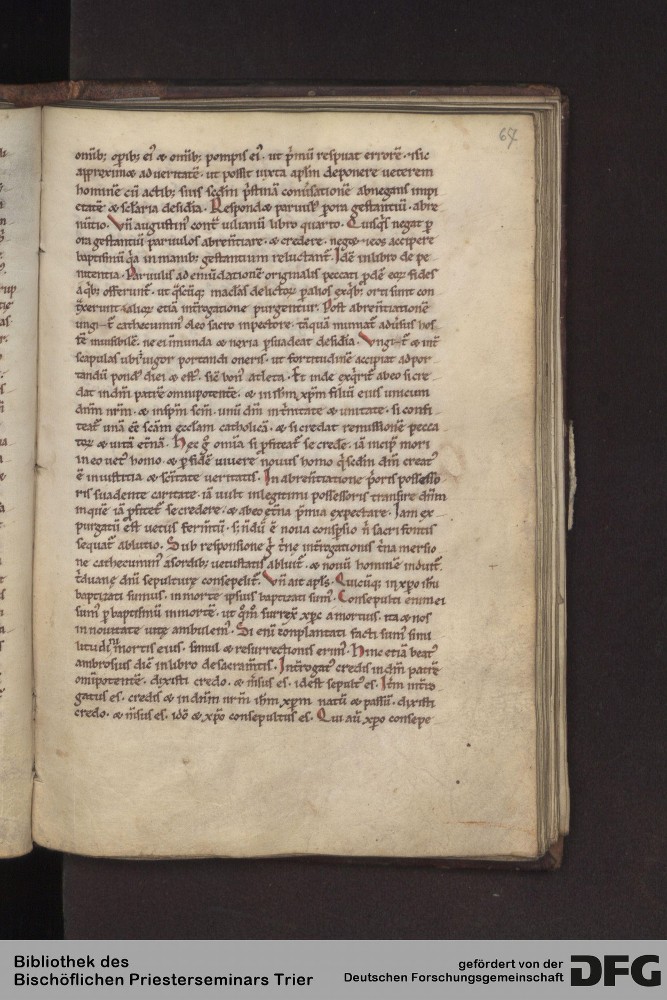 67
omib; opib; ei⁹ & omib; pompis ei⁹. ut p̄mū respuat errorē. & sic
appropinq& ad veritatē. ut possit iuxta aplm deponere veterem
hominē cū actib; suis scdm p̄stinā conuersationē abnegans impi
etatē & sclaria desidia. Respond& paruul⁹ p ora gestantiū. abre
nūtio. Vn̄ augustin⁹ contᵃ iulianū libro quarto. Cuisq̄s negat p
ora gestantiū paruulos abren̄tiare. & credere. neg& & eos accipere
baptismū q̄a in manib; gestantium reluctant͛. Idē in libro de pe
nitentia. Paruulis ad emūdationē originalis peccati p̄dē eoꝝ fides
a q̇b; offerunt͛. ut q̄scūq; maclas delictoꝝ p alios ex q̇b; orti sunt con
tᵃxerunt. alioꝝ etiā int̄rogatione purgentur. Post abren̄tiationē
ungit͛ cathecumin⁹ oleo sacro in pectore. tāquā muniat͛ aduersus hos
tē inuisibilē. ne ei īmunda & noxia p̄suadeat desidia. Vngit͛ & int͛
scapulas ubi ē uigor portandi oneris. ut fortitudinē accipiat ad por
tandū pond⁹ diei & est⁹. sic̄ bon⁹ atleta. Et inde exq̇rit͛ ab eo si cre
dat in dm̄ patrē omnipotentē. & in ihm xpm filiū eius unicum
dn̄m nr̄m. & in sp̄m sc̄m. unū dm̄ in t̄nitate & unitate. si confi
teat͛ unā eē sc̄am eccl̄am catholicā. & si credat remissionē pecca
toꝝ & uitā et̄nā. Hec ḡ omīa si p̄fiteat͛ se crede͛. iā incip̄ mori
in eo uet⁹ homo. & p fidē uiuere nouus homo q̇ scdm dm̄ creat⁹
ē in iustitia & sc̄itate ueritatis. In abren̄tiatione p̄oris possesso
ris suadente caritate. iā uult in legitimi possessoris transire dn̄iu͞m
in quē iā p̄fitet͛ se credere. & ab eo et̄na p̄mia expectare. Iam ex
purgatū est uetus fermtū. s; nōdū ē noua consp̄sio n̄ sacri fontis
sequat͛ ablutio. Sub responsione ḡ t̄ne int̄rogationis t̄na mersio
ne cathecumin⁹ a sordib; uetustatis abluit͛. & nouū hominē induit͛.
t̄duane dn̄i sepulture consepelit͛. Vn̄ ait apl̄s. Quicūq; in xpo ihu
baptizati sumus. in morte ipsius baptizati sum⁹. Consepulti enim ei
sum⁹ p baptismū in morte. ut q̄m̄ surrex̄ xpc a mortuis. ita & nos
in nouitate uite ambulem⁹. Si enī conplantati facti sum⁹ simi
litudini mortis eius. simul & resurrectionis erim⁹. Hinc etiā beat⁹
ambrosius dic̄ in libro de sacram̄tis. Int̄rogat⁹ credis in dm̄ patrē
omīpotentē. dixisti credo. & m̄sus es. id est sepult⁹ es. Itm̄ int̄ro
gatus es. credis & in dn̄m nr̄m ihm xpm natū & passū. dixisti
credo. & m̄sus es. idō & xpo consepultus es. Qui aū xpo consepe
Bibliothek des
Bischöflichen Priesterseminars Trier
gefördert von der
Deutschen Forschungsgemeinschaft
DFG